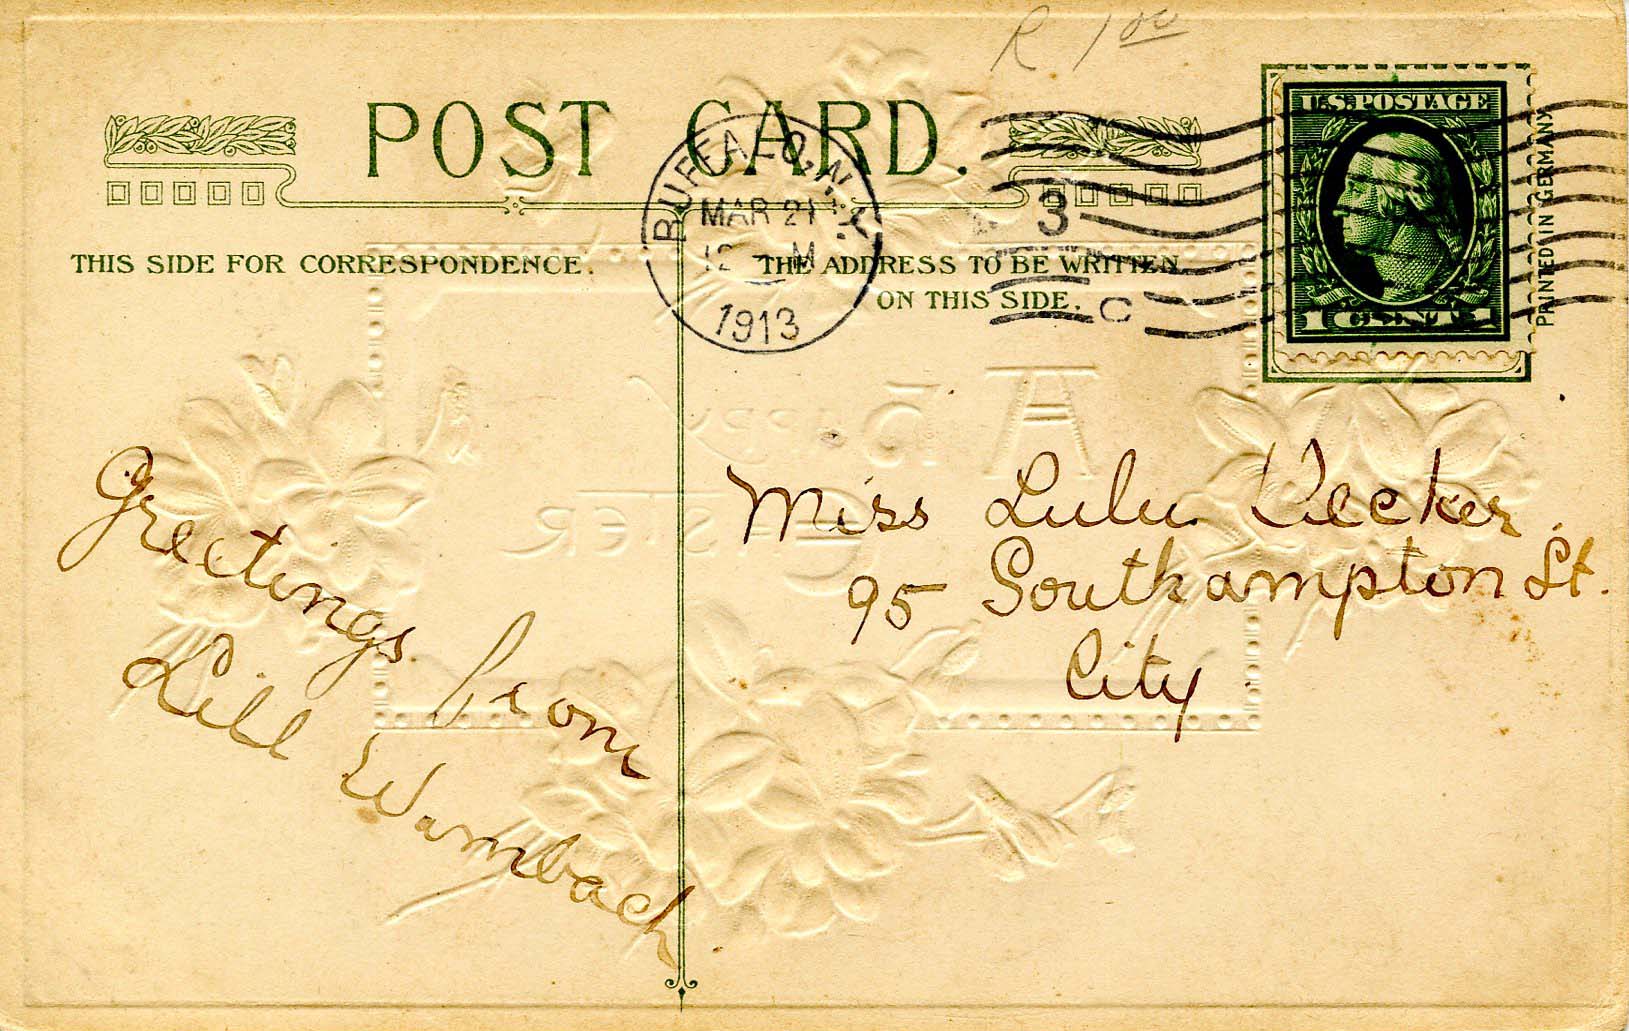 R 1 00
POST CARD.
U.S. POSTAGE
1 CENT 1
PRINTED IN GERMANY
BUFFALO, N.Y.
MAR 21
12 M
1913
3
C
THIS SIDE FOR CORRESPONDENCE.
THE ADDRESS TO BE WRITTEN
ON THIS SIDE.
A Happy
EASTER
Greetings from
Lill Wambach.
Miss Lulu Decker.
95 Southampton St.
City